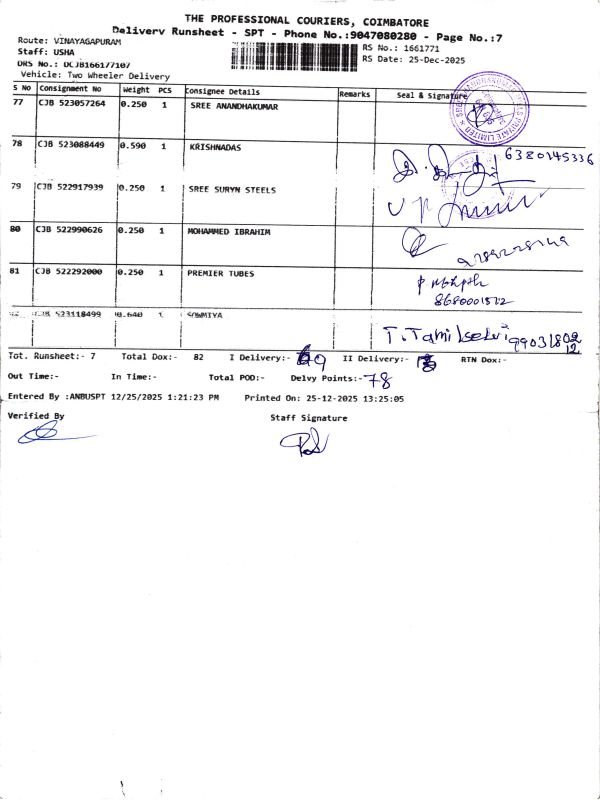 THE PROFESSIONAL COURIERS, COIMBATORE
Delivery Runsheet - SPT - Phone No.:9047080280 - Page No.:7
Route: VINAYAGAPURAM
Staff: USHA
DRS No.: DCJB166177107
Vehicle: Two Wheeler Delivery
RS No.: 1661771
RS Date: 25-Dec-2025
S No Consignment No Weight PCS Consignee Details Remarks Seal & Signature
77 CJB 523057264 0.250 1 SREE ANANDHAKUMAR
78 CJB 523088449 0.590 1 KRISHNADAS 6380145336
79 CJB 522917939 0.250 1 SREE SURYN STEELS
80 CJB 522990626 0.250 1 MOHAMMED IBRAHIM
81 CJB 522292000 0.250 1 PREMIER TUBES
8680001512
82 CJB 523118499 0.640 1 SOWMIYA
T. Tamilselvi
Tot. Runsheet:- 7 Total Dox:- 82 I Delivery:- 69 II Delivery:- RTN Dox:-
Out Time:- In Time:- Total POD:- Delvy Points:- 78
Entered By :ANBUSPT 12/25/2025 1:21:23 PM Printed On: 25-12-2025 13:25:05
Verified By Staff Signature